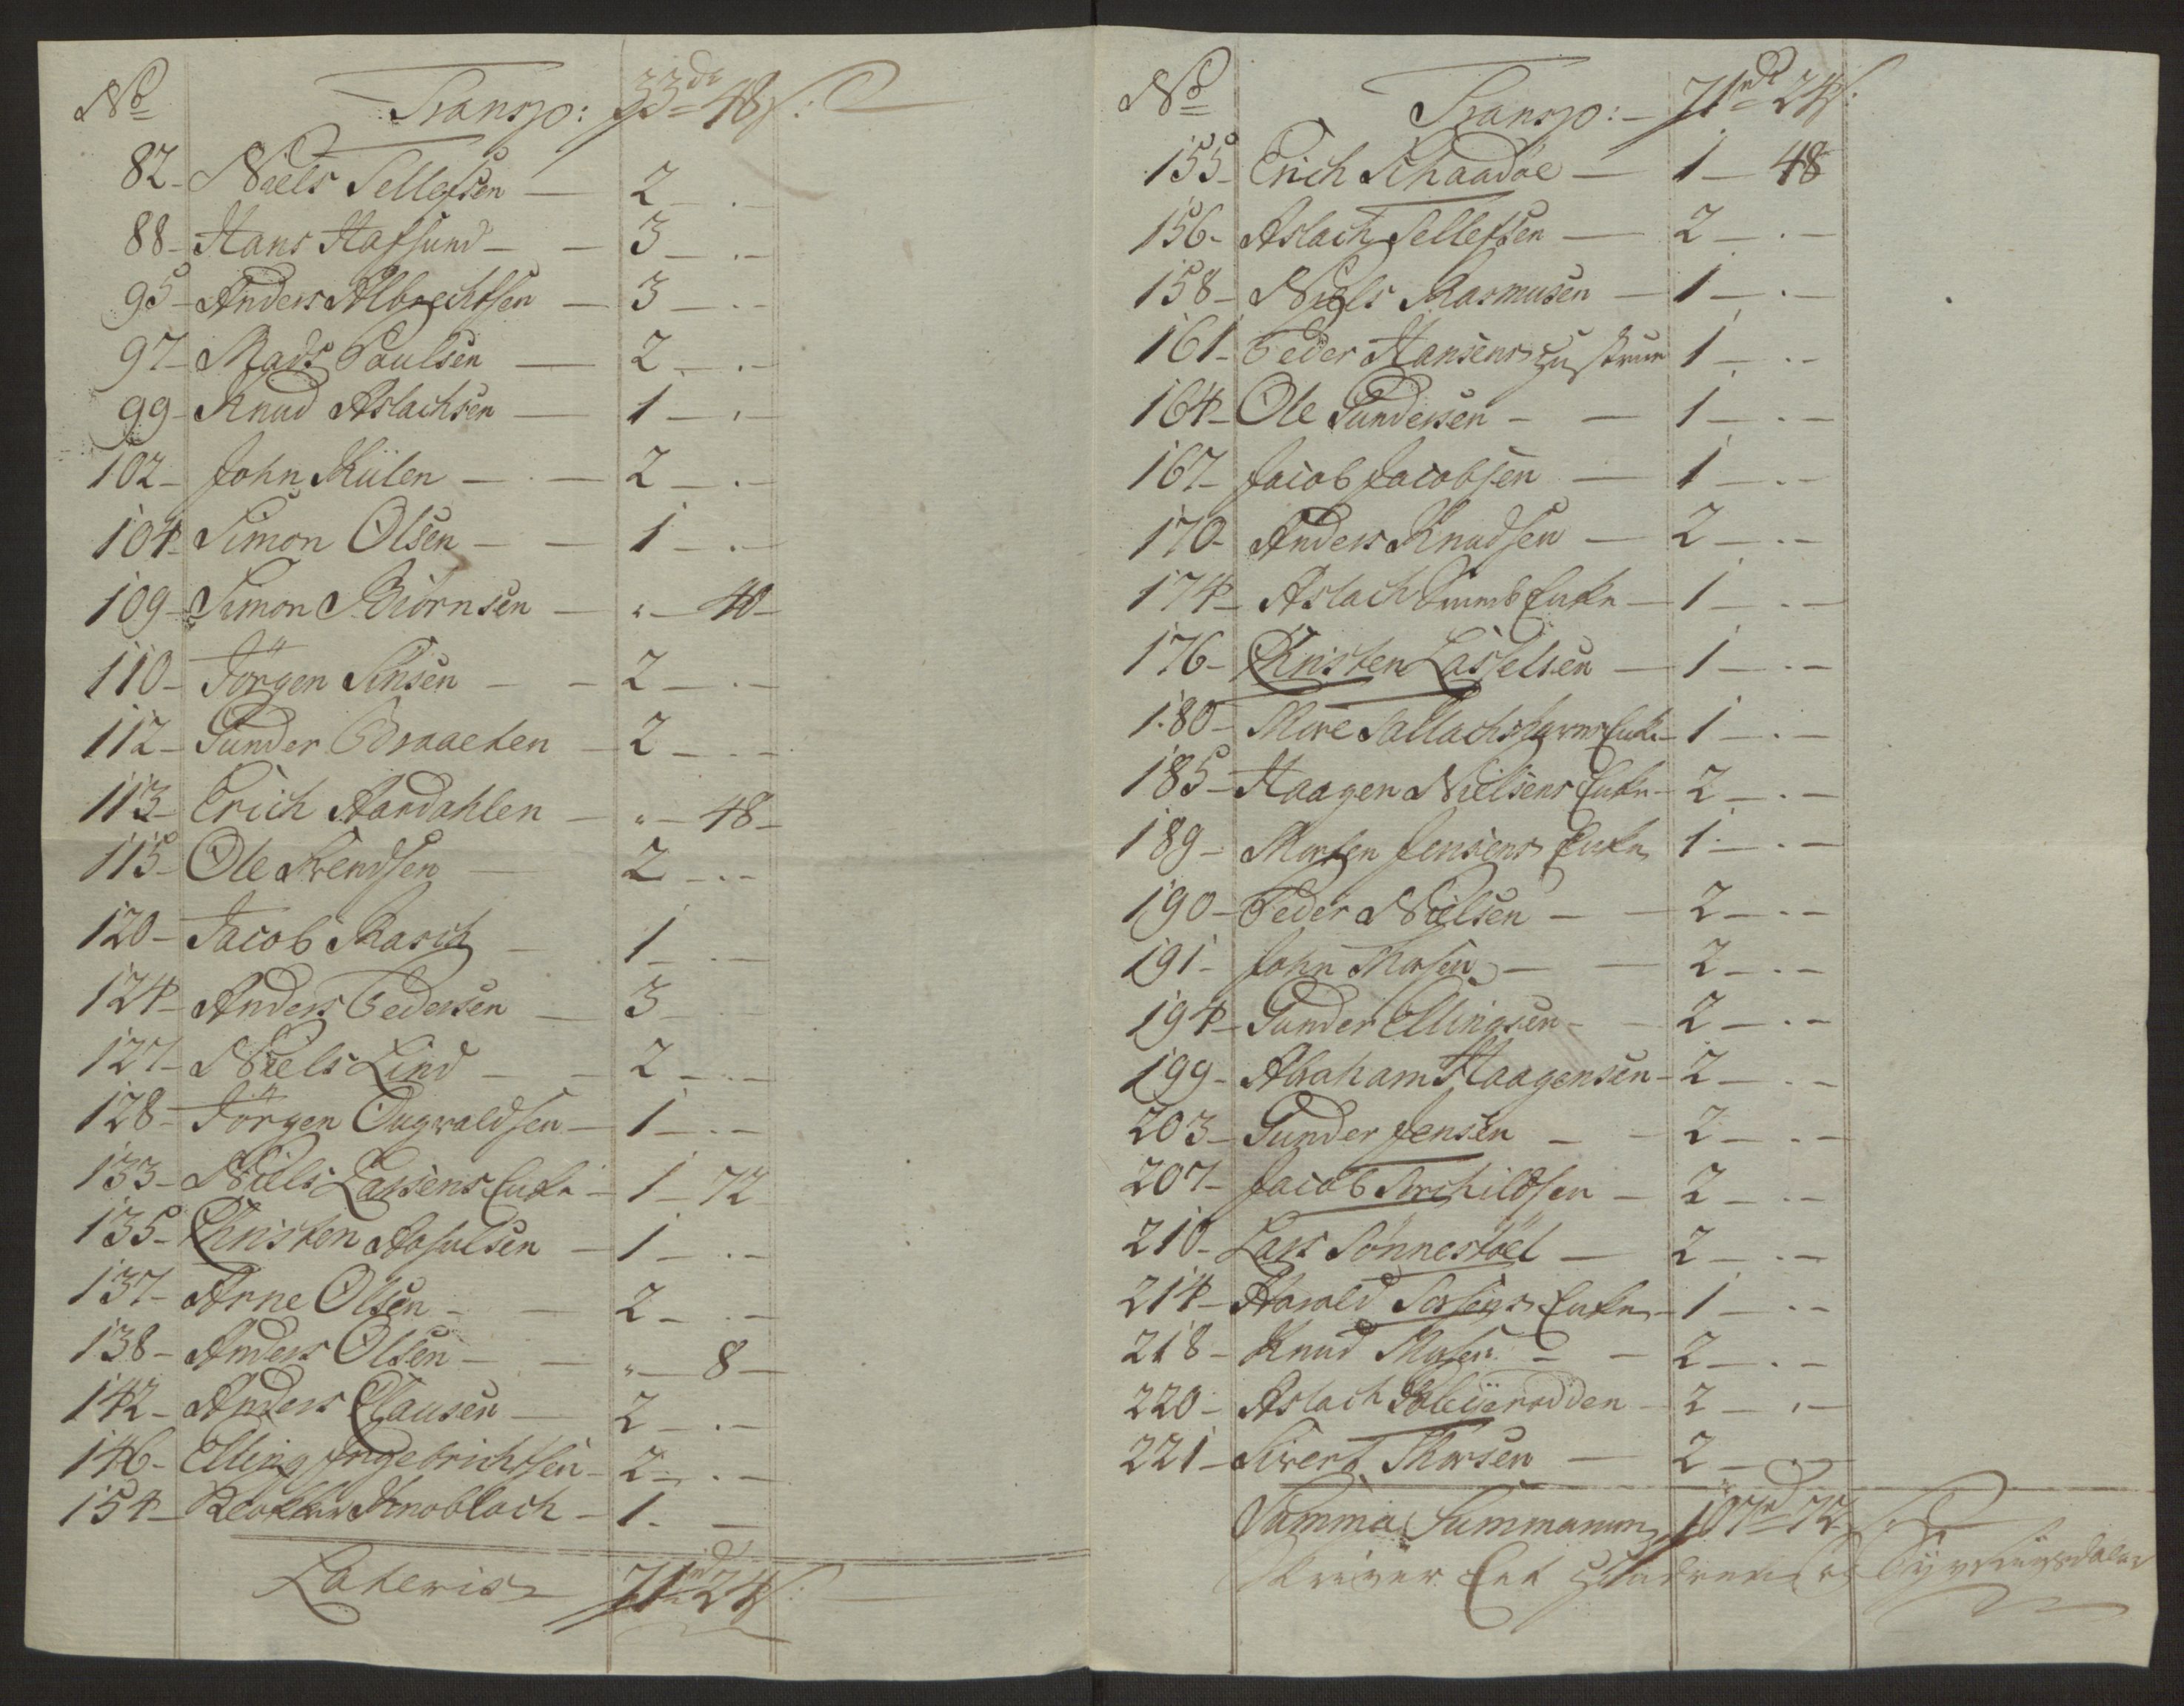 No Transp: 33rd 48s:
82 - Niels Tellefsen — 2 - . -
88 - Hans Hafsund - — 3 - . -
95 - Anders Albrechtsen — 3 - . -
97 - Mads Poulsen — 2 - . -
99 - Knud Aslachsen — 1 - . -
102 - John Külen - . — 2 - . -
104 - Simon Olsen - — 1 - . -
109 - Simon Biörnsen — " - 40 -
110 - Jörgen Sinsen - - 2 - . -
112 - Gunder Braaeten - 2 - . -
113 - Erich Aardahlen - " - 48 -
115 - Ole Svendsen — 2 - . -
120 - Jacob Rasch - 1 - . -
124 - Anders Pedersen — 3 - . -
127 - Niels Lind - - 2 - . -
128 - Jörgen Ougvaldsen - 1 - . -
133 - Niels Larsens Enke - 1 - 72
135 - Christen Asfuelsen - 1 - . -
137 - Arne Olsen - — 2 - . -
138 - Anders Olsen - — " - 8 -
142 - Anders Clausen — 2 - . -
146 - Elling Ingebrichtsen - 2 - . -
154 - Knoblach - 1 - . -
Lateris 71rd 24s:
No Transp: - 71rd 24s:
155 - Erich Schaadöe — 1 - 48
156 - Aslach Tellefsen — 2 - . -
158 - Niels Rasmusen — 1 - . -
161 - Peder Hansens Hustrue 1 - . -
164 - Ole Gundersen - — 1 - . -
167 - Jacob Jacobsen — 1 - . -
170 - Anders Knudsen — 2 - . -
174 - Aslach Enke - 1 - . -
176 - Christen Lasselsen — 1 - . -
180 - Enke - 1 - . -
185 - Haagen Nielsens Enke - 2 - . -
189 - Morten Jensens Enke 1 - . -
190 - Peder Nielsen - — 2 - . -
191 - John Thorsen - — 2 - . -
194 - Gunder Ellingsen - - 2 - . -
199 - Abraham Haagensen - 2 - . -
203 - Gunder Jensen - - 2 - . -
207 - Jacob Torchildsen - 2 - . -
210 - Lars Sönnestöel — 2 - . -
214 - Harald Enke - 1 - . -
218 - Knud Thorsen - - 2 - . -
220 - Aslach Bleijerodden - 2 - . -
221 - Sivert Thorsen — 2 - . -
Summa Summarum 107rd 72s
Skriver Eet Hundrede og Syv Rigsdaler